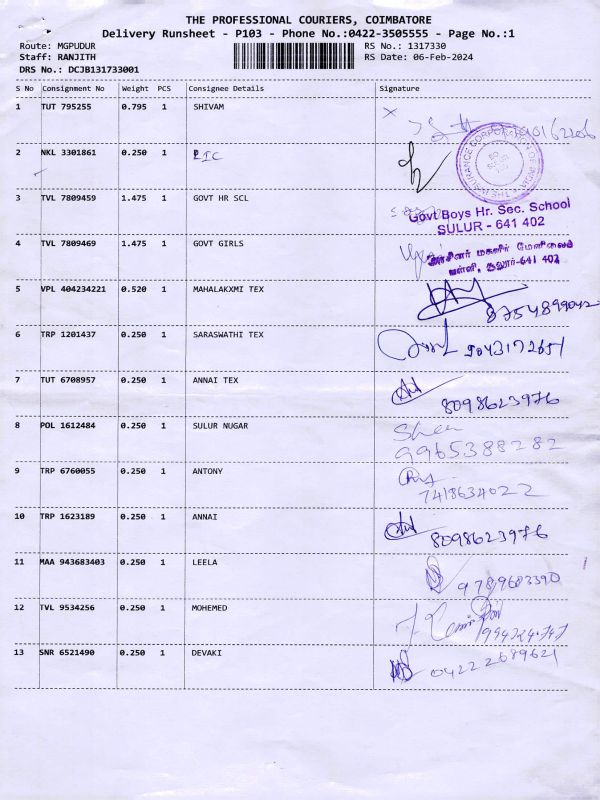 THE PROFESSIONAL COURIERS, COIMBATORE
Delivery Runsheet - P103 - Phone No.:0422-3505555 - Page No.:1
Route: MGPUDUR RS No.: 1317330
Staff: RANJITH RS Date: 06-Feb-2024
DRS No.: DCJB131733001
S No Consignment No Weight PCS Consignee Details Signature
1 TUT 795255 0.795 1 SHIVAM
2 NKL 3301861 0.250 1 LIC
INSURANCE CORPORATION OF INDIA
3 TVL 7809459 1.475 1 GOVT HR SCL
Govt Boys Hr. Sec. School
SULUR - 641 402
4 TVL 7809469 1.475 1 GOVT GIRLS
அரசினர் மகளிர் மேனிலைப்
பள்ளி, சூலூர்-641 402
5 VPL 404234221 0.520 1 MAHALAKXMI TEX
8754899042
6 TRP 1201437 0.250 1 SARASWATHI TEX
9043172651
7 TUT 6708957 0.250 1 ANNAI TEX
8098623976
8 POL 1612484 0.250 1 SULUR NUGAR
9965388282
9 TRP 6760055 0.250 1 ANTONY
7418634022
10 TRP 1623189 0.250 1 ANNAI
8098623976
11 MAA 943683403 0.250 1 LEELA
9789683390
12 TVL 9534256 0.250 1 MOHEMED
13 SNR 6521490 0.250 1 DEVAKI
04222689621